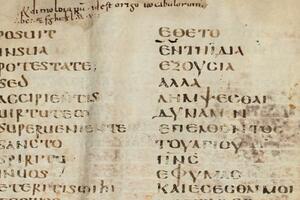 id est origo vocabulorum
POSUIT ΕΘΕΤΟ
INSUA ΕΝΤΗΙΔΙΑ
POTESTATE ΕΞΟΥϹΙΑ
SED ΑΛΛΑ
ACCIPIENTIS ΛΗΜΨΕϹΘΑΙ
UIRTUTEM ΔΥΝΑΜΙΝ
SUPERUENIENTE ΕΠΕΛΘΟΝΤΟϹ
SANCTO ΤΟΥΑΓΙΟΥ
SPIRITU ΠΝϹ
INUOS ΕΦΥΜΑϹ
ETERITISMIHI ΚΑΙΕϹΕϹΘΑΙΜΟΙ